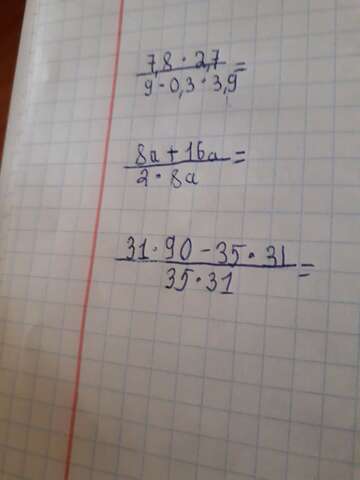 7,8 · 2,7
9 · 0,3 · 3,9 =
8a + 16a
2 · 8a =
31 · 90 - 35 · 31
35 · 31 =